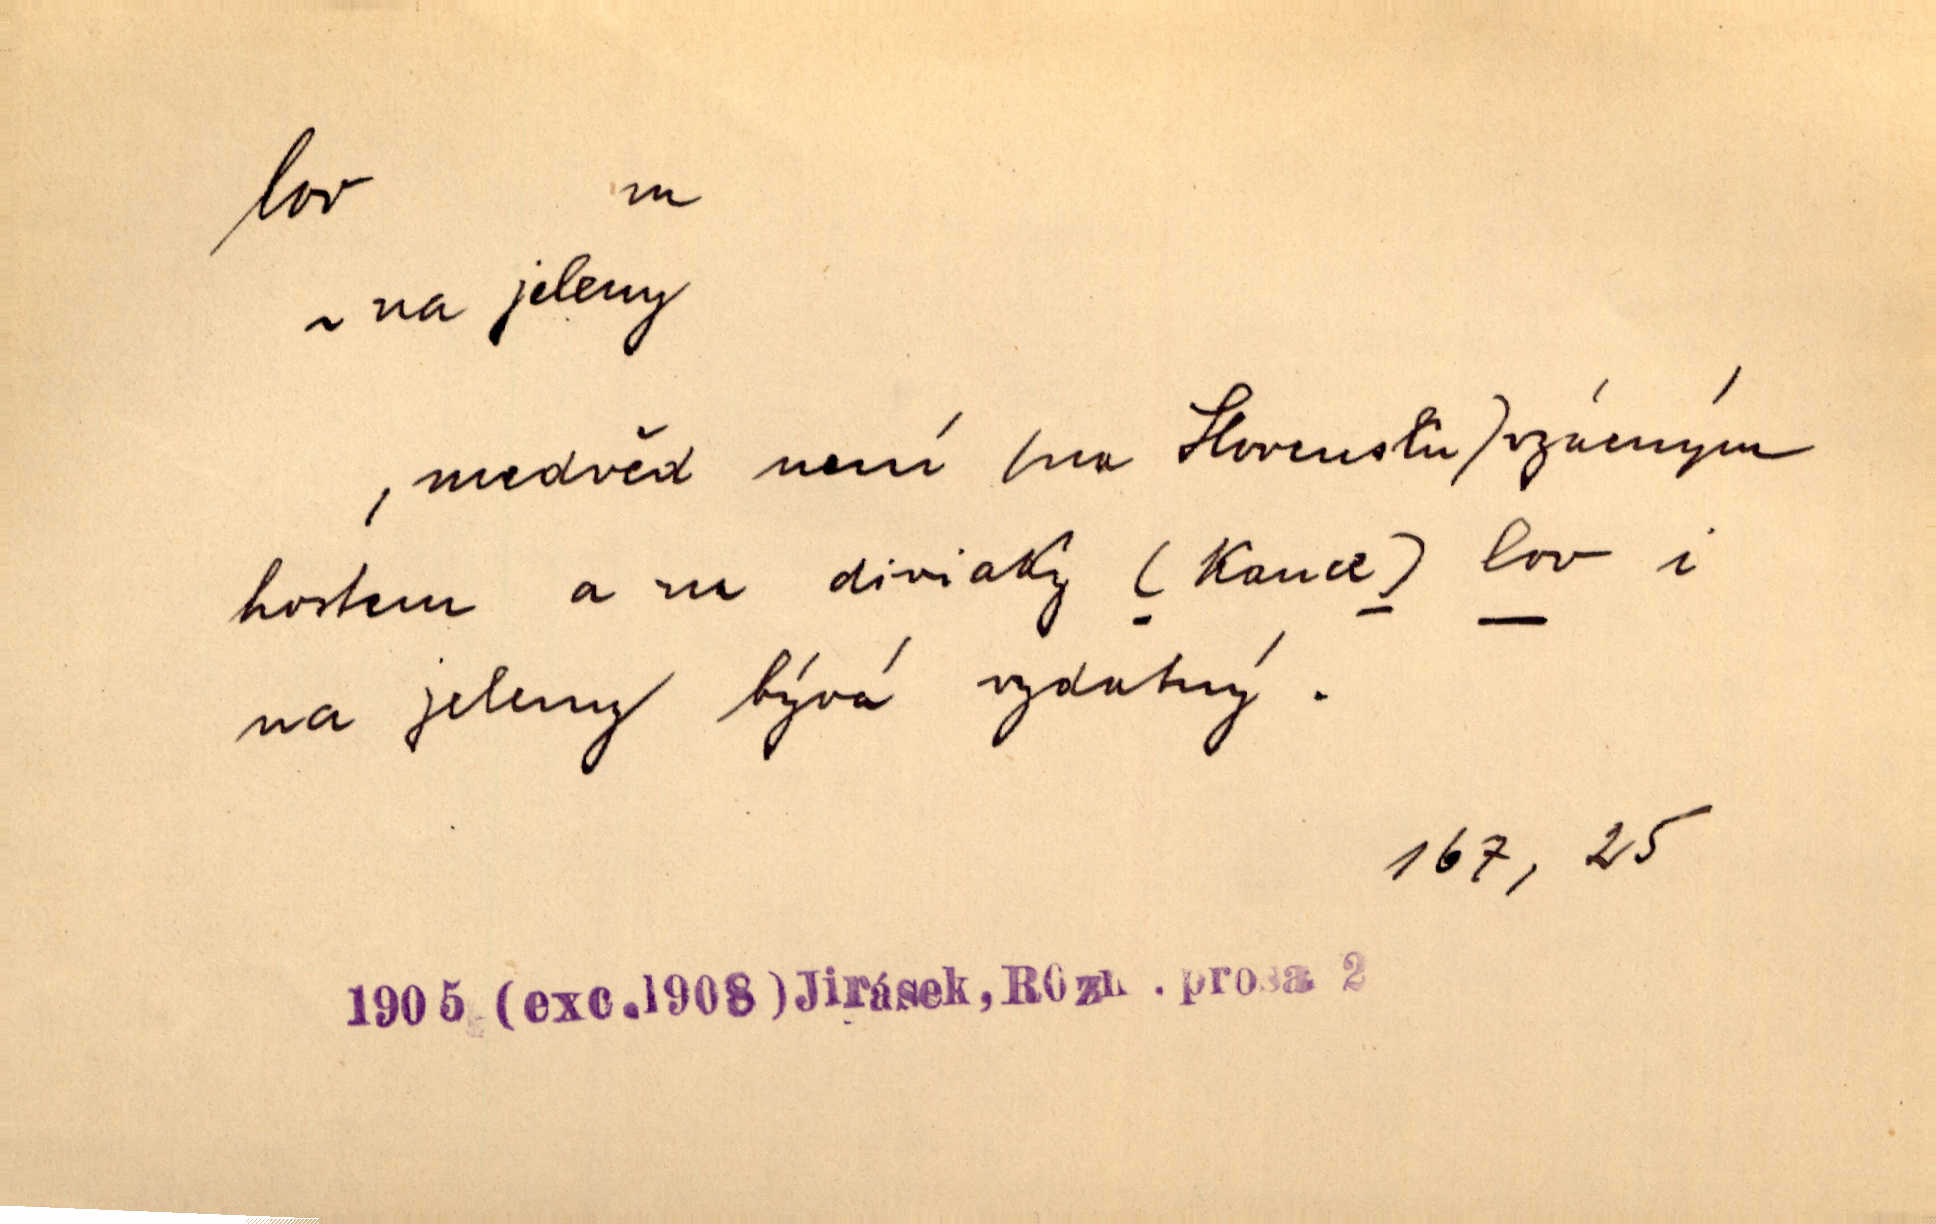 lov m
~ na jeleny
, medvěd není (na Slovensku) vzácným
hostem a na diviaky (kance) lov i
na jeleny bývá vydatný.
167, 25
1905 (exc.1908) Jirásek, Rozm. prosa 2